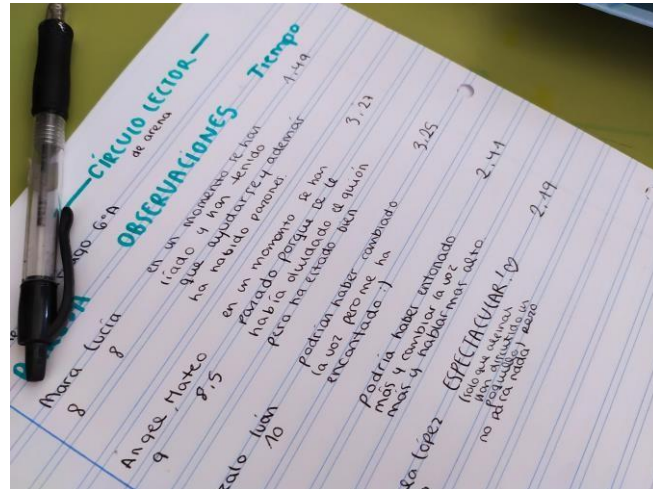 — CÍRCULO LECTOR —
de arena
6ºA
OBSERVACIONES Tiempo
Mara Lucía
8 8
en un momento se han
líado y han tenido
que ayudarse y además
ha habido parones.
1.49
Angel, Mateo
9 8.5
en un momento se han
parado porque se le
había olvidado el guión
pero ha estado bien
3.27
Iván
10
Podrían haber cambiado
la voz pero me ha
encantado :)
3.25
Podría haber entonado
más y cambiar la voz
más y hablar más alto.
2.41
López
ESPECTACULAR! ♡
(solo que apenas
han discutido un
poquito) pero
no pasa nada)
2.19